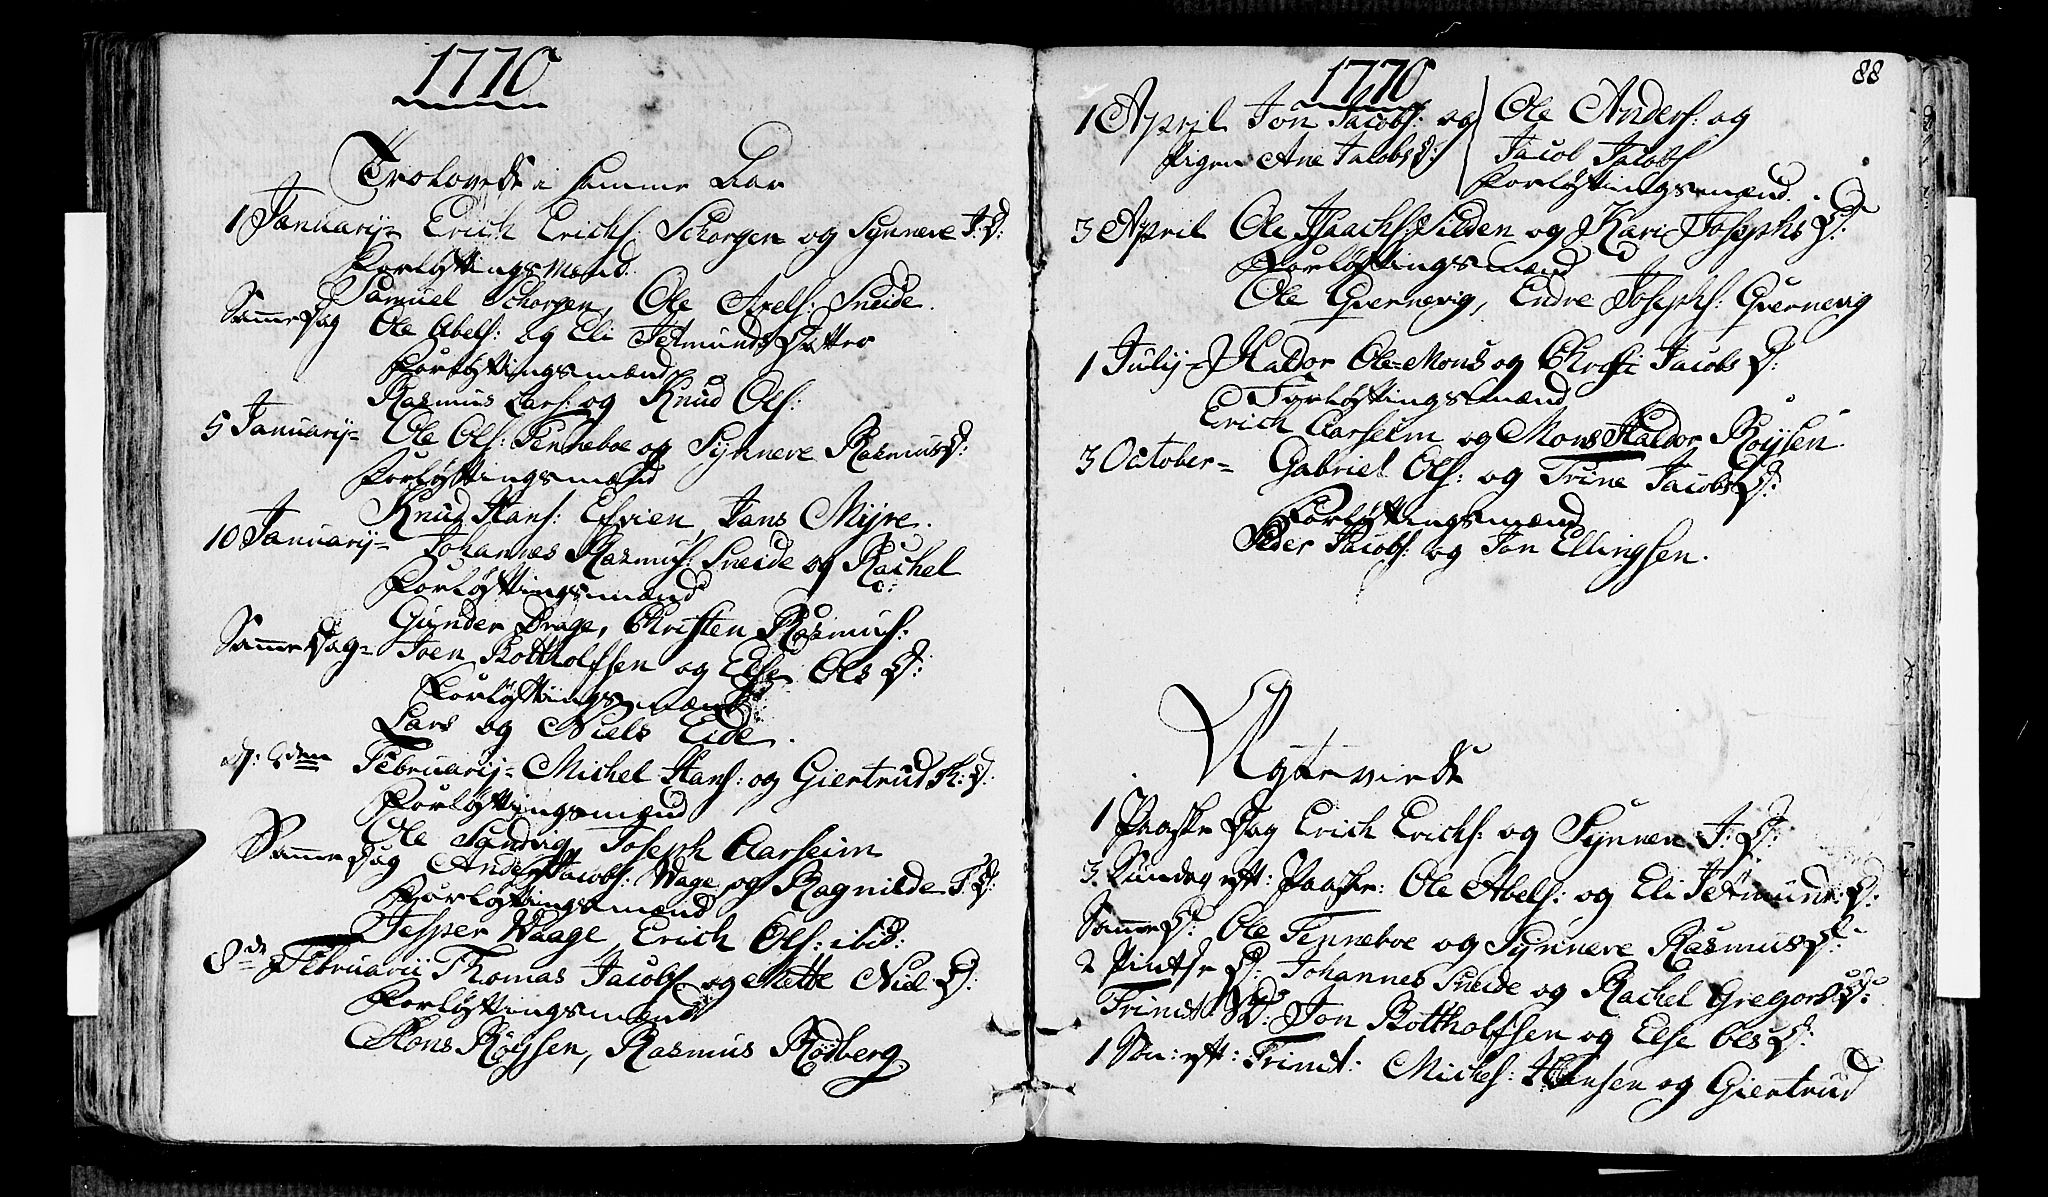 1770
Trolovede i samme Aar
1 Januarij- Erich Erichs: Schorgen og Synneve J: D:
Forløftingsmænd.
Samuel Schorgen, Ole Axels: Sneide.
Samme Dag Ole Abels: og Eli Tetmunds Datter
Forløftingsmænd
Rasmus Lars: og Knud Ols:
5 Januarij= Ole Ols: Tenneboe og Synneve RasmusD:
Forløftingsmænd
Knud Hans: Efvien, Jans Myre.
10 Januarij= Johannes Rasmus: Sneide og Rachel G:
Forløftingsmænd
Gunder Drage, Christen Rasmus:
Samme Dag= Joen Bottholfsen og Else Ols D:
Forløftingsmænd
Lars og Niels Eide.
Februarij= Michel Hans: og Giertrud R: D:
Forløftingsmænd
Ole Sandvig, Joseph Aarseim
Samme Dag Anders Jacobs: Wage og Ragnilde T: D:
Forløftingsmænd
Jesper Waage, Erich Ols: ibid:
8de Februarii Thomas Jacobs: og Mette Niels D:
Forløftingsmænd
Mons Røysen, Rasmus Rødberg
1770
88
1 April Jon Jacobs: og
Pigen Ane JacobsD:
Ole Anders: og
Jacob Jacobs
Forløftingsmænd.
3 April Ole Isachs: Silden og Kari Josephs D:
Forløftingsmænd
Ole Qvernevig, Endre Josephs: Qvernevig
1 Julij- Haldor Ole-Mons og Chrsti Jacobs D:
Forløftingsmænd
Erich Aarseim og Mons Haldor Røysen
3 October= Gabriel Ols: og Trine Jacobs D:
Forløftingsmænd
Peder Jacobs: og Jon Ellingsen.
Ægtevivede
1 Paaske Dag Erich Erichs: og Synneve J: D:
3. Sundag eft: Paaske: Ole Abels: og Eli Tetmunds: D:
Samme D: Ole Tenneboe og Synneve Rasmus D:
2 Pintse D: Johannes Sneide og Rachel Gregors D:
Trinit: SD: Jon Bottholfsen og Else Ols D:
1 Søn: eft: Trinit: Michel: Hansen og Giertrud D